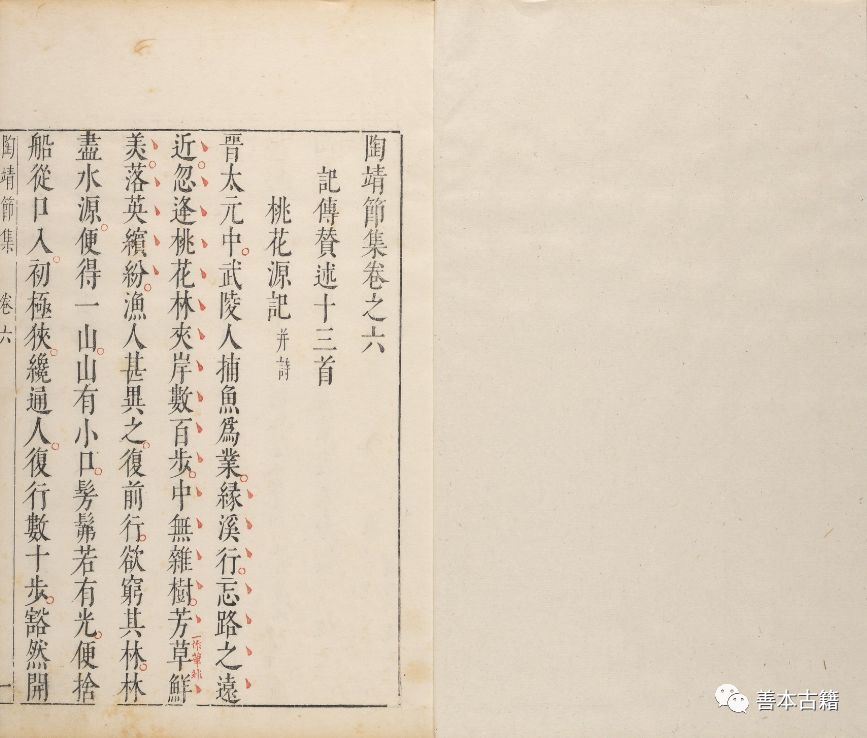 陶靖節集卷之六
記傳贊述十三首
桃花源記并詩
晉太元中。武陵人捕魚爲業。緣溪行。忘路之遠
近。忽逢桃花林。夾岸數百步。中無雜樹。芳草鮮
一作華
美。落英繽紛。漁人甚異之。復前行。欲窮其林。林
盡水源。便得一山。山有小口。髣髴若有光。便捨
船從口入。初極狹。纔通人。復行數十步。豁然開
陶靖節集 卷六 一
善本古籍